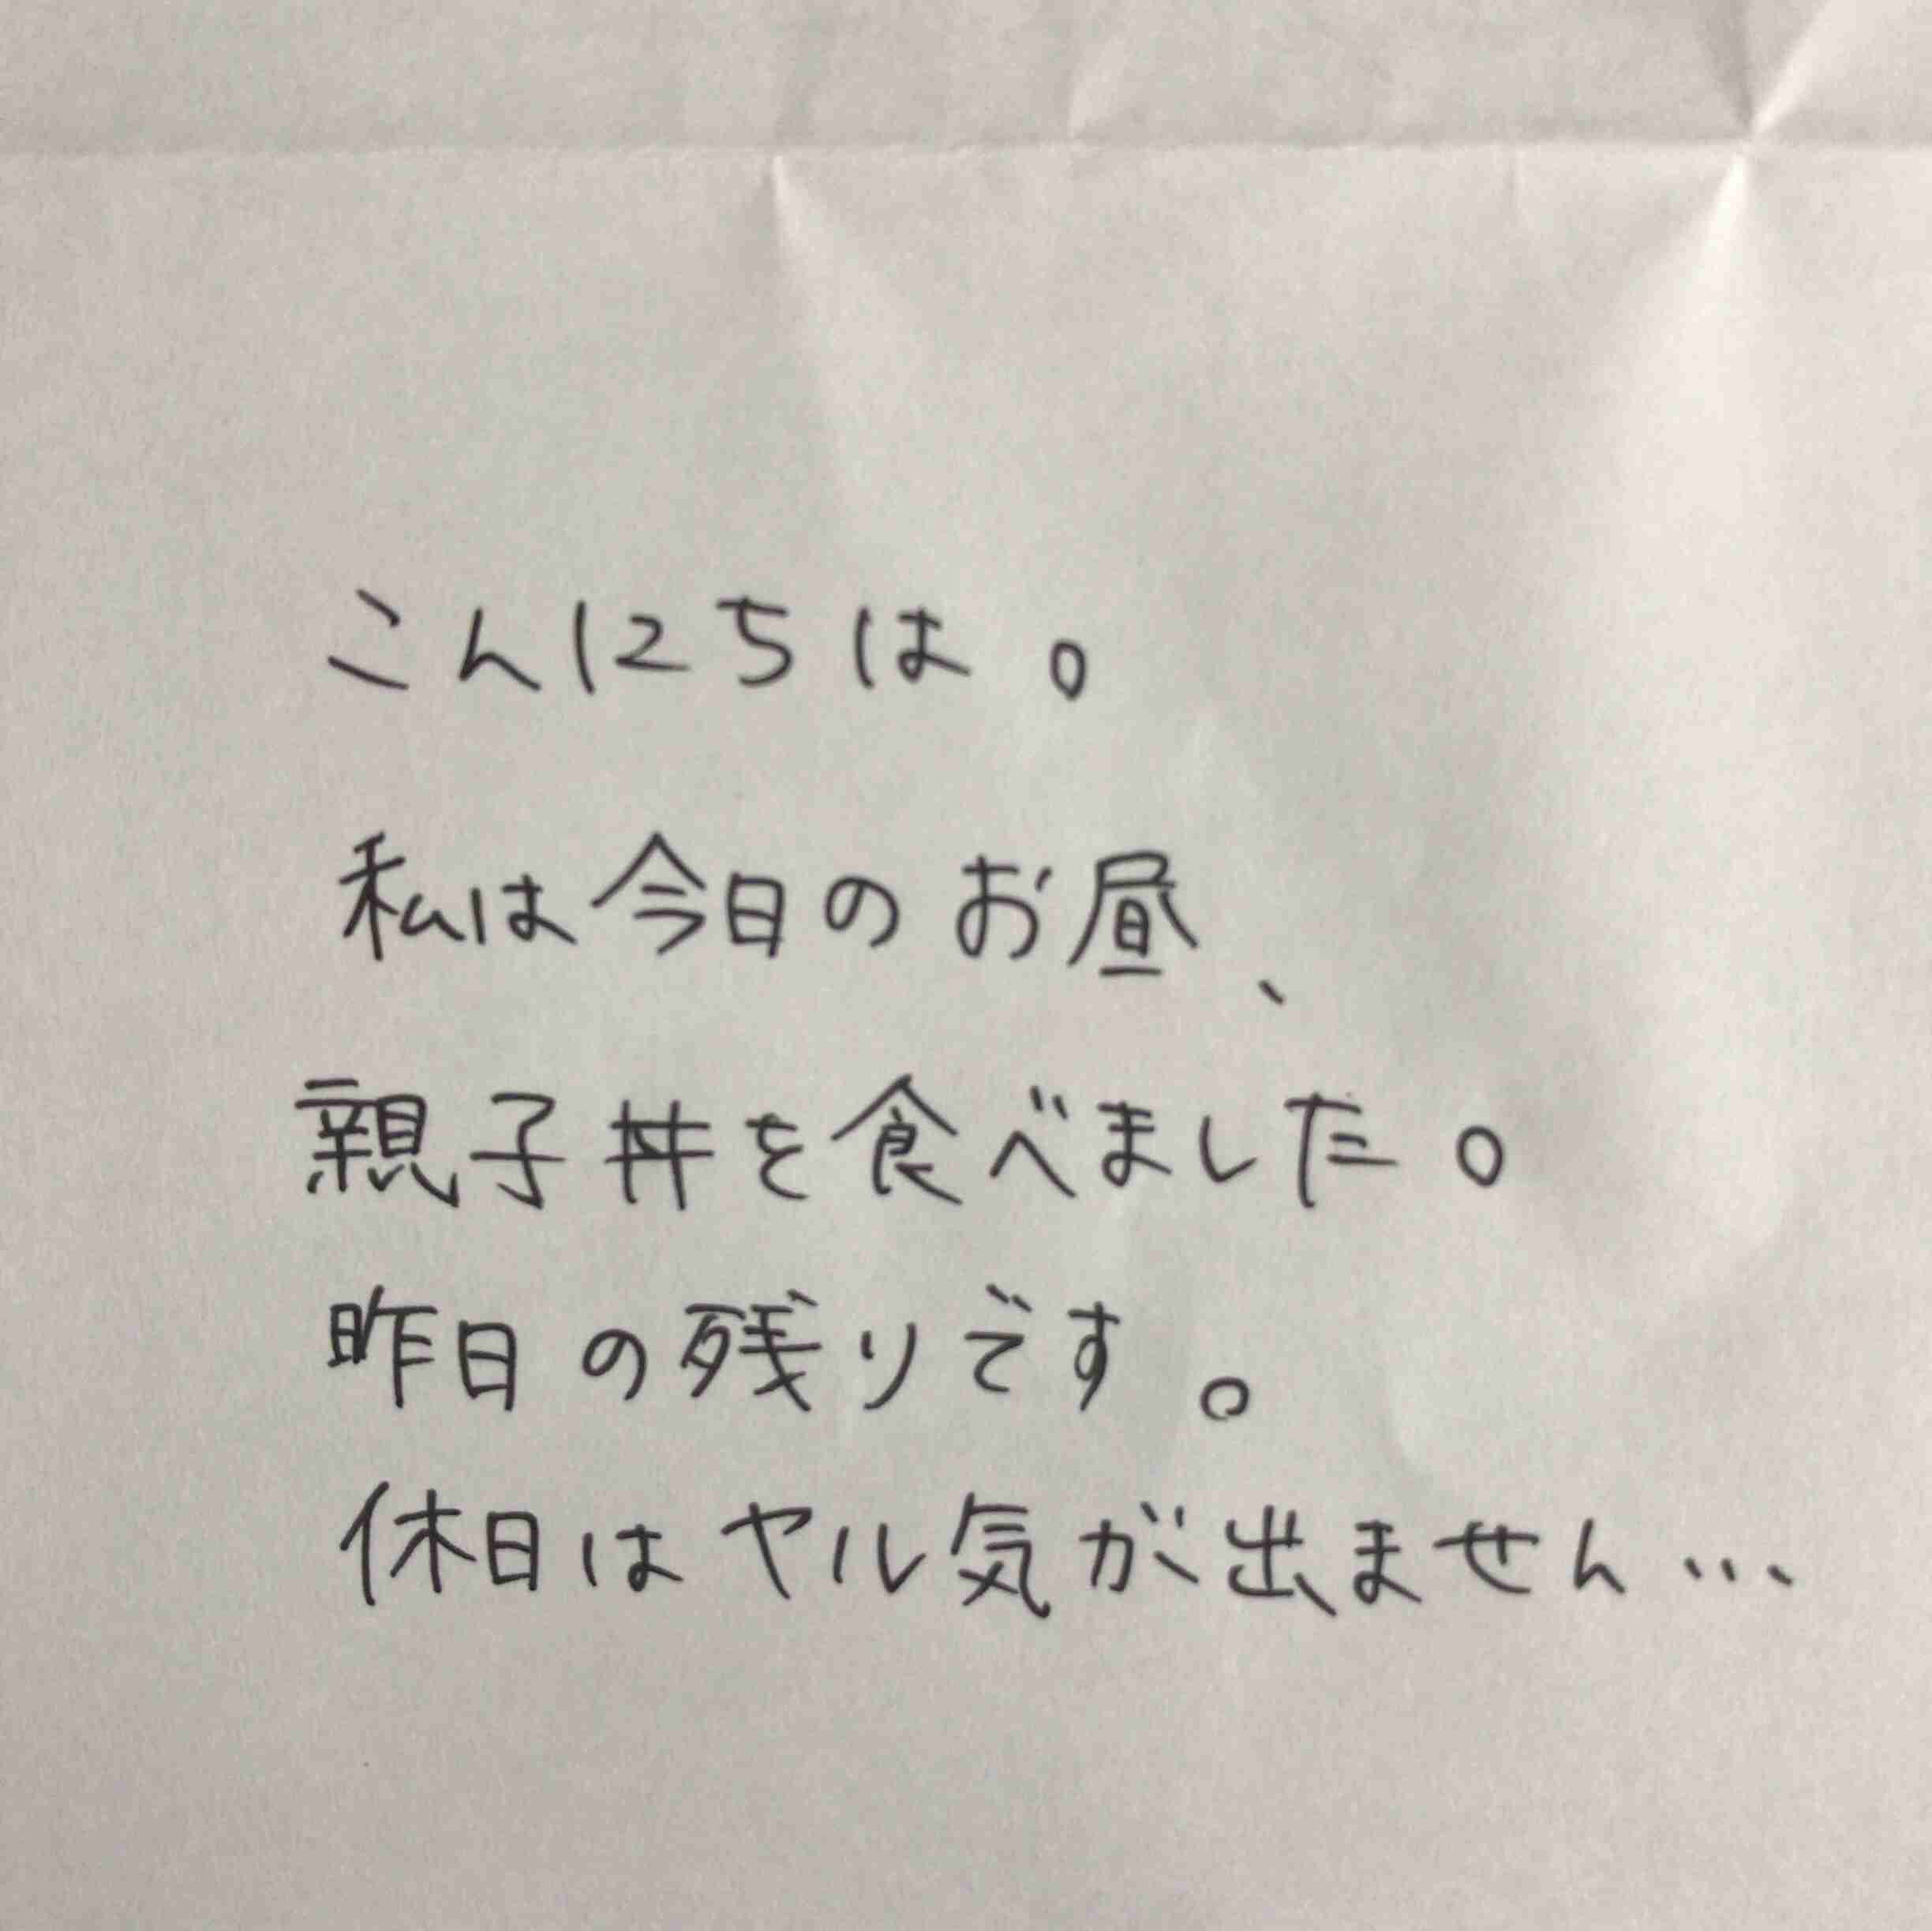 こんにちは。
私は今日のお昼、
親子丼を食べました。
昨日の残りです。
休日はヤル気が出ません…